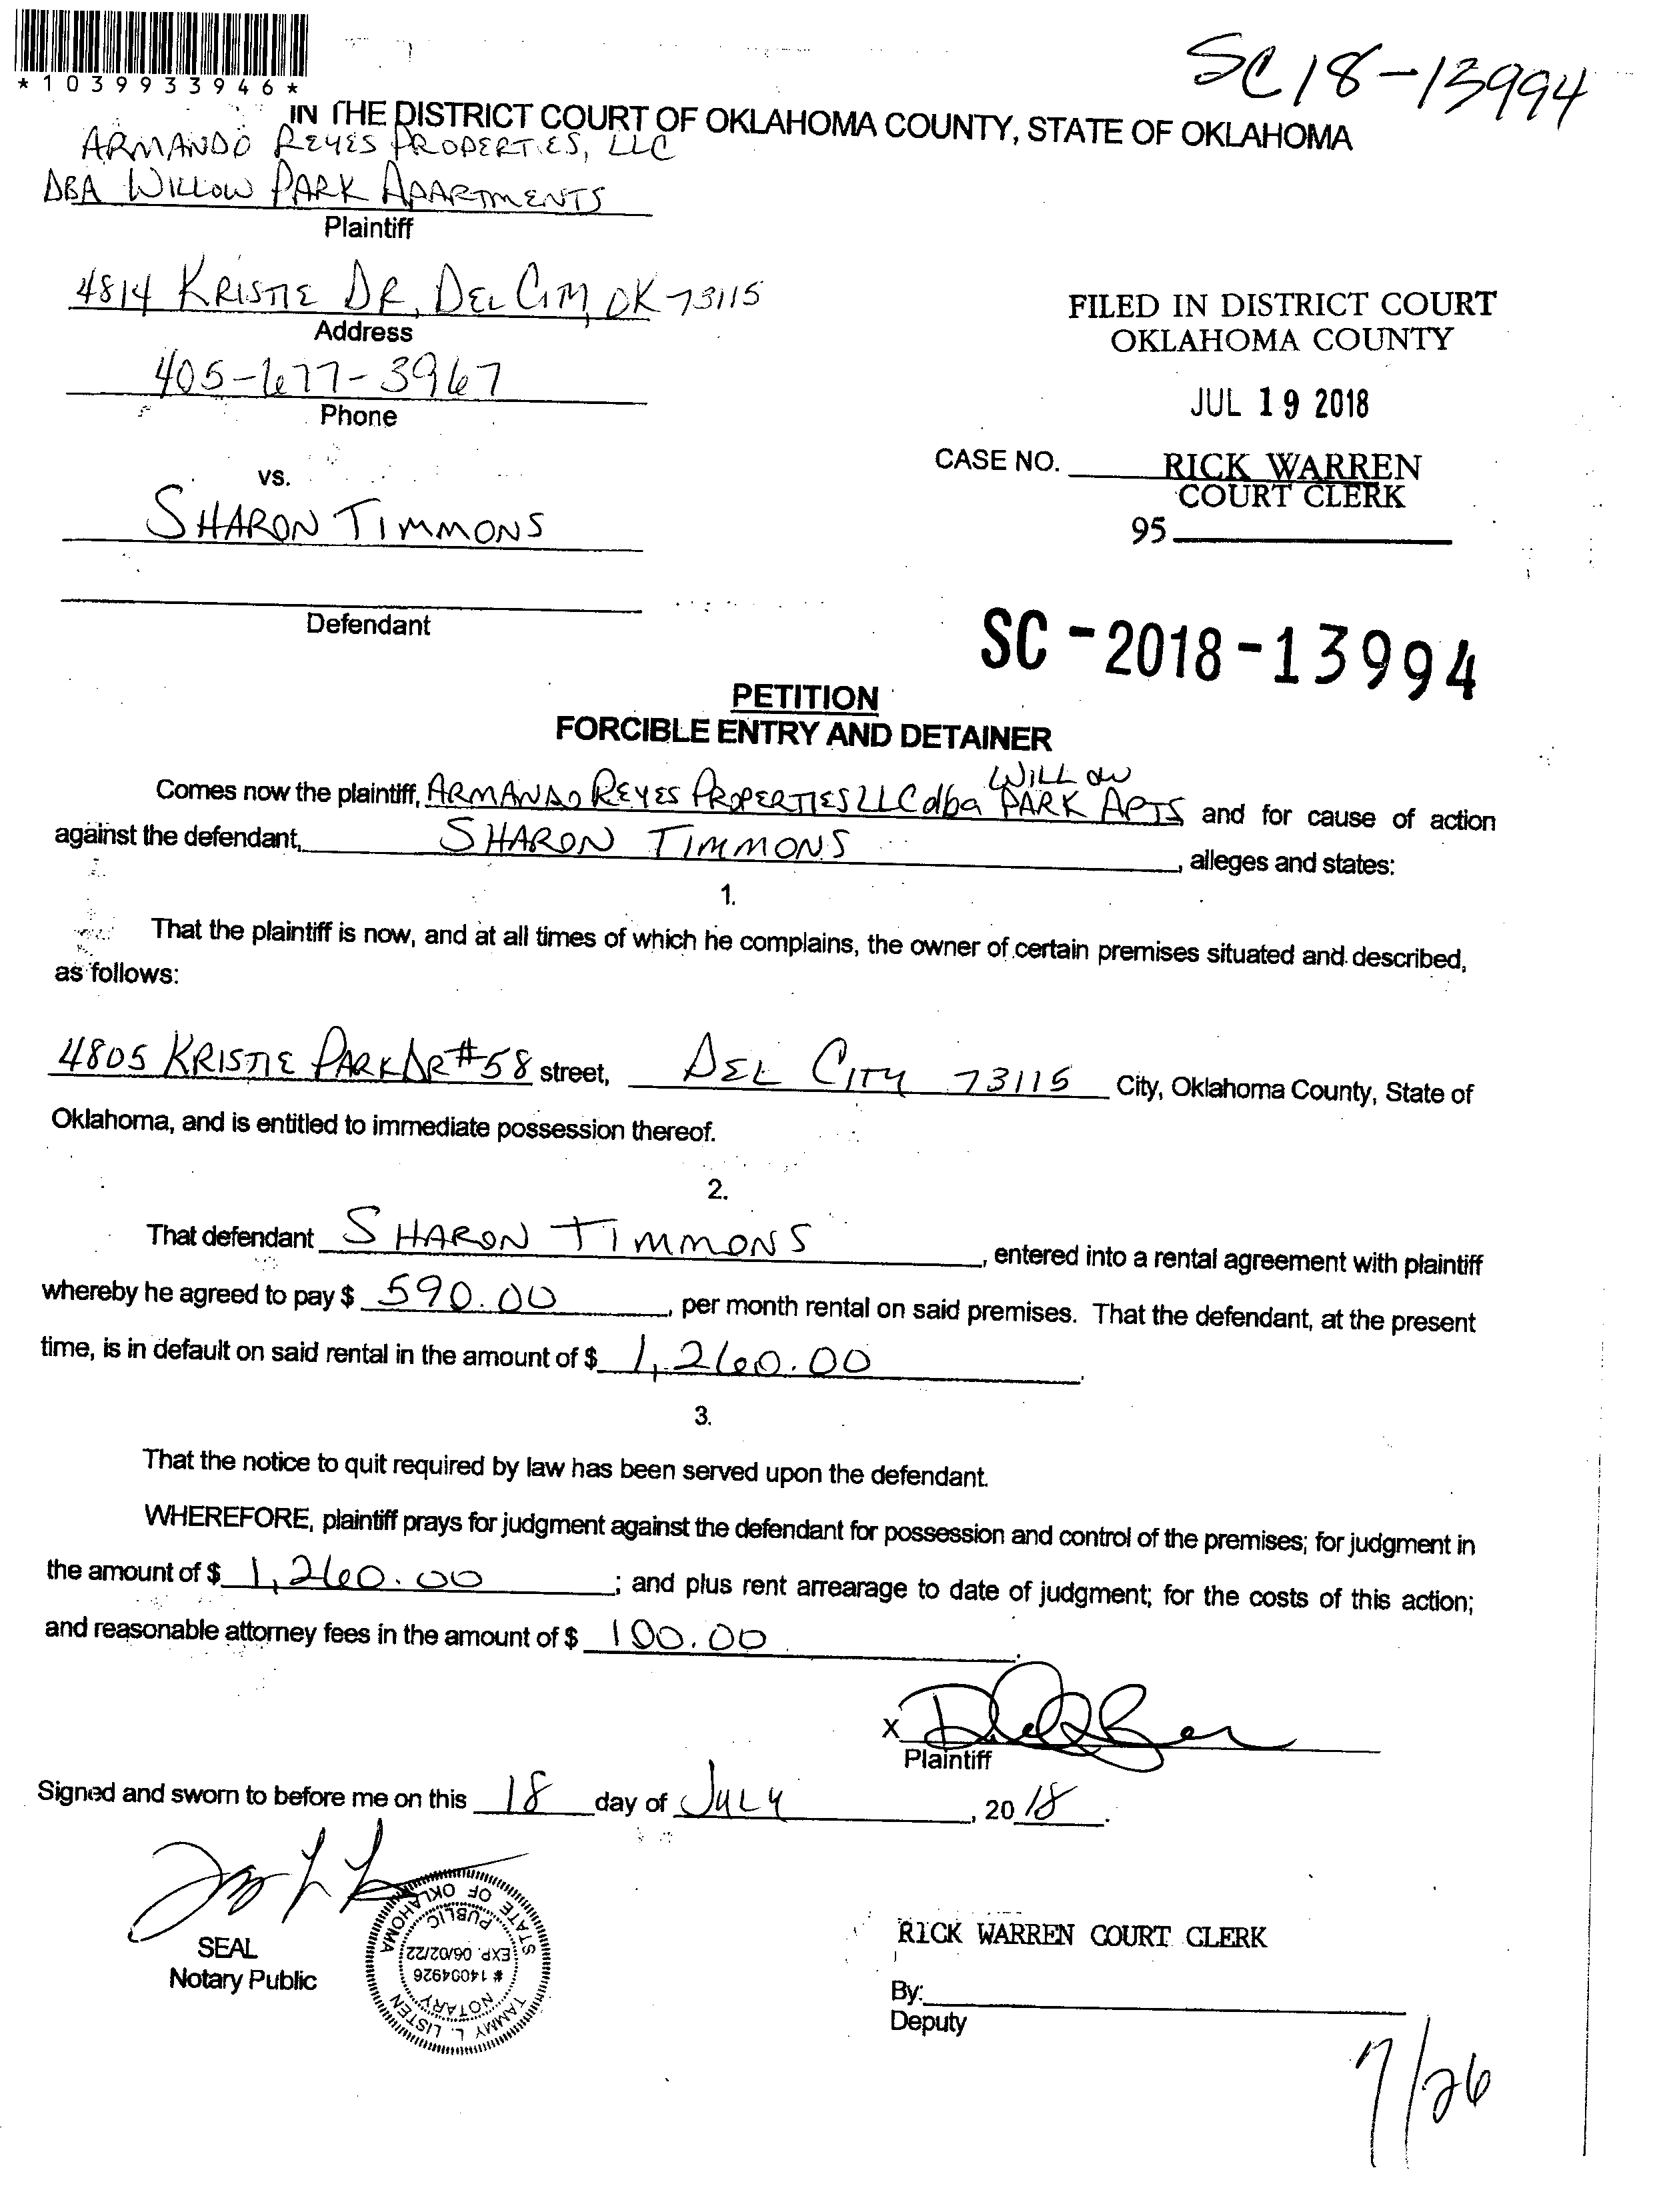 *1039933946*
SC18-13994
IN THE DISTRICT COURT OF OKLAHOMA COUNTY, STATE OF OKLAHOMA
ARMANDO REYES PROPERTIES, LLC
DBA WILLOW PARK APARTMENTS
Plaintiff
4814 KRISTIE DR, DEL CITY, OK 73115
Address
405-677-3967
Phone
FILED IN DISTRICT COURT
OKLAHOMA COUNTY
JUL 19 2018
CASE NO. RICK WARREN
COURT CLERK
95
vs.
SHARON TIMMONS
Defendant
SC-2018-13994
PETITION
FORCIBLE ENTRY AND DETAINER
Comes now the plaintiff, ARMANDO REYES PROPERTIES LLC dba WILLOW PARK APTS and for cause of action
against the defendant, SHARON TIMMONS, alleges and states:
1.
That the plaintiff is now, and at all times of which he complains, the owner of certain premises situated and described,
as follows:
4805 KRISTIE PARK DR #58 street, DEL CITY 73115 City, Oklahoma County, State of
Oklahoma, and is entitled to immediate possession thereof.
2.
That defendant SHARON TIMMONS, entered into a rental agreement with plaintiff
whereby he agreed to pay $ 590.00, per month rental on said premises. That the defendant, at the present
time, is in default on said rental in the amount of $ 1,260.00.
3.
That the notice to quit required by law has been served upon the defendant.
WHEREFORE, plaintiff prays for judgment against the defendant for possession and control of the premises; for judgment in
the amount of $ 1,260.00; and plus rent arrearage to date of judgment; for the costs of this action;
and reasonable attorney fees in the amount of $ 100.00.
X
Plaintiff
Signed and sworn to before me on this 18 day of JULY, 2018.
SEAL
Notary Public
TAMMY L. LISTEN
NOTARY
# 14004926
EXP. 06/02/22
PUBLIC
STATE OF OKLAHOMA
RICK WARREN COURT CLERK
By:
Deputy
7/26